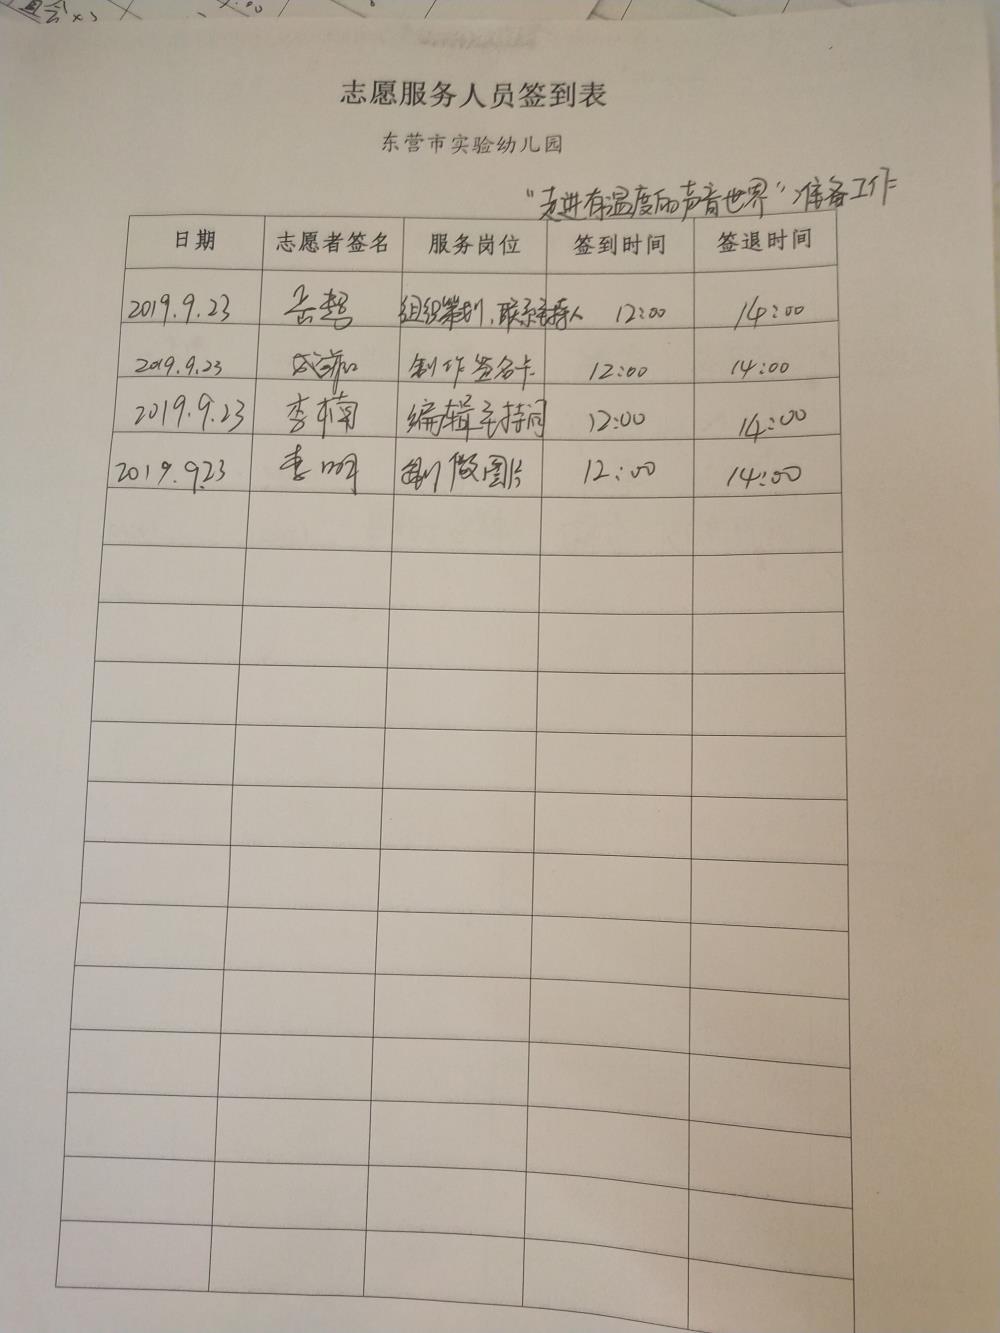 志愿服务人员签到表
东营市实验幼儿园
“走进有温度的声音世界”准备工作
日期 志愿者签名 服务岗位 签到时间 签退时间
2019.9.23 岳慧 组织策划、联系主持人 12:00 14:00
2019.9.23 制作签名卡 12:00 14:00
2019.9.23 李楠 编辑主持词 12:00 14:00
2019.9.23 李明 做图片 12:00 14:00